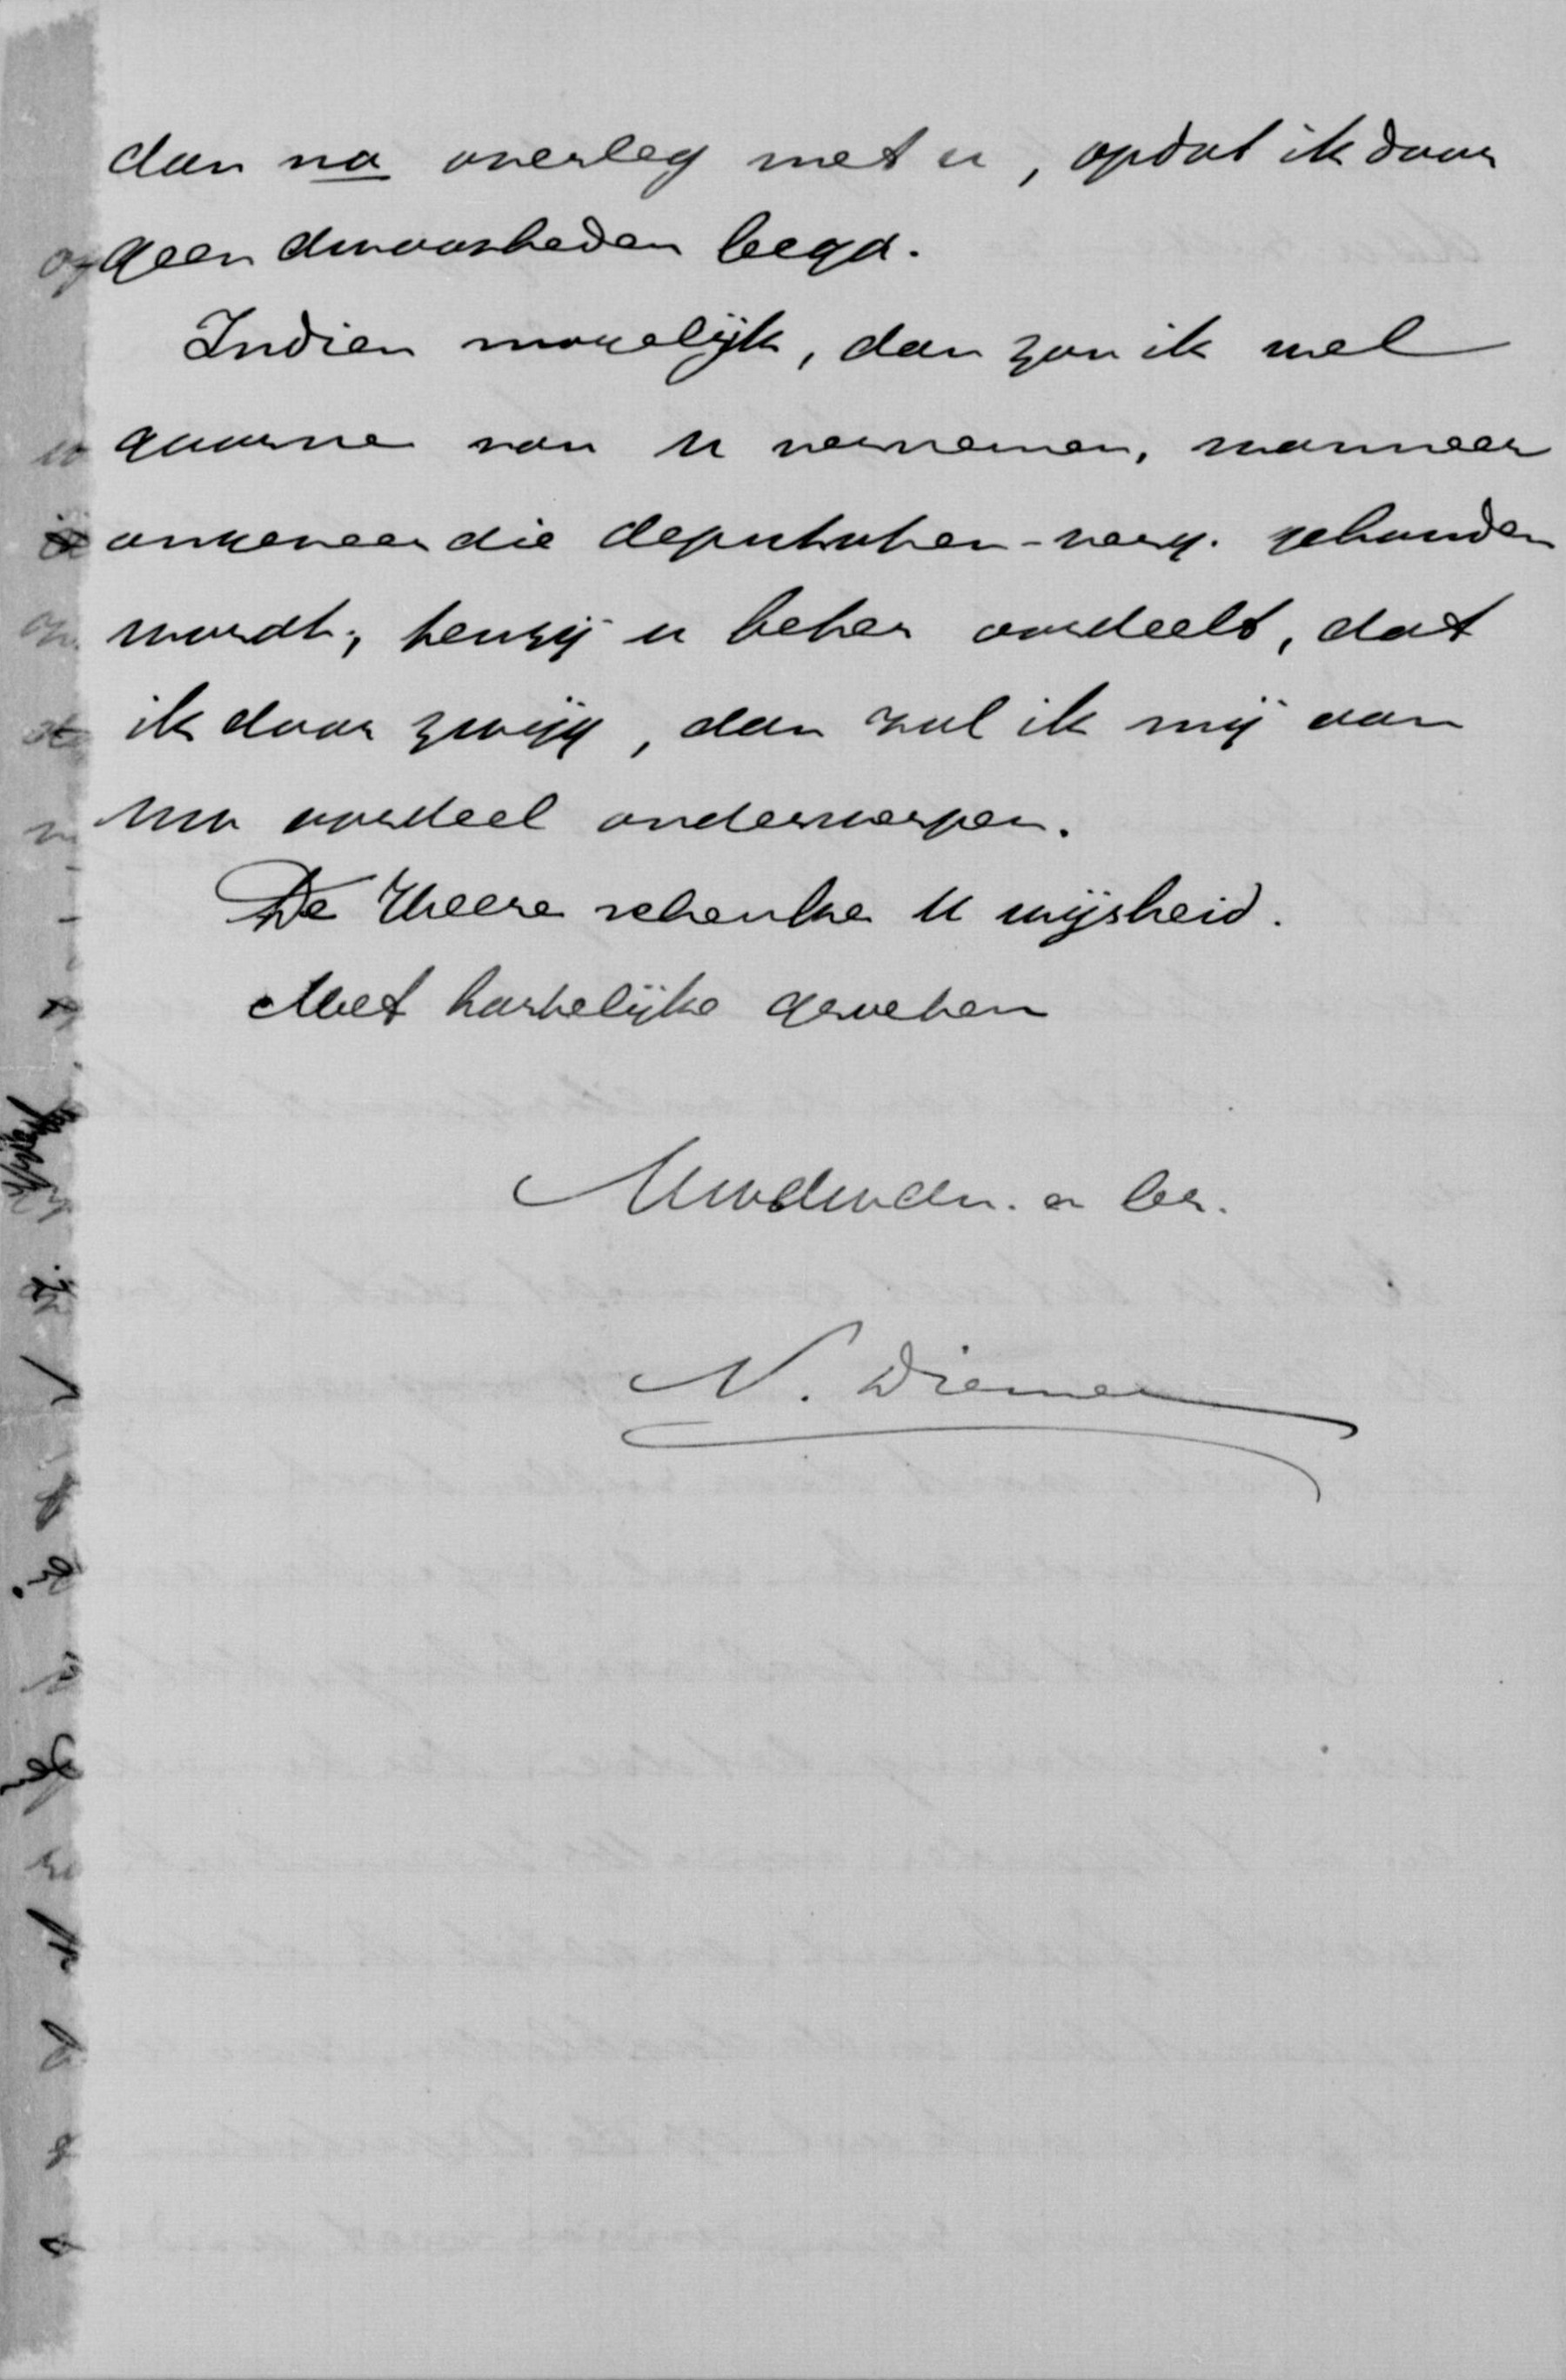 dan na overleg met u, opdat ik daar
geen dwaasheden bega.
Indien mogelijk, dan zou ik wel
gaarne van U vernemen, wanneer
ongeveer die deputaten-verg. gehouden
wordt; tenzij u beter oordeelt, dat
ik daar zwijg, dan zal ik mij aan
Uw oordeel onderwerpen.
De Heere schenke U wijsheid.
Met hartelijke groeten
Uwdwdn. en br.
N. Diemer